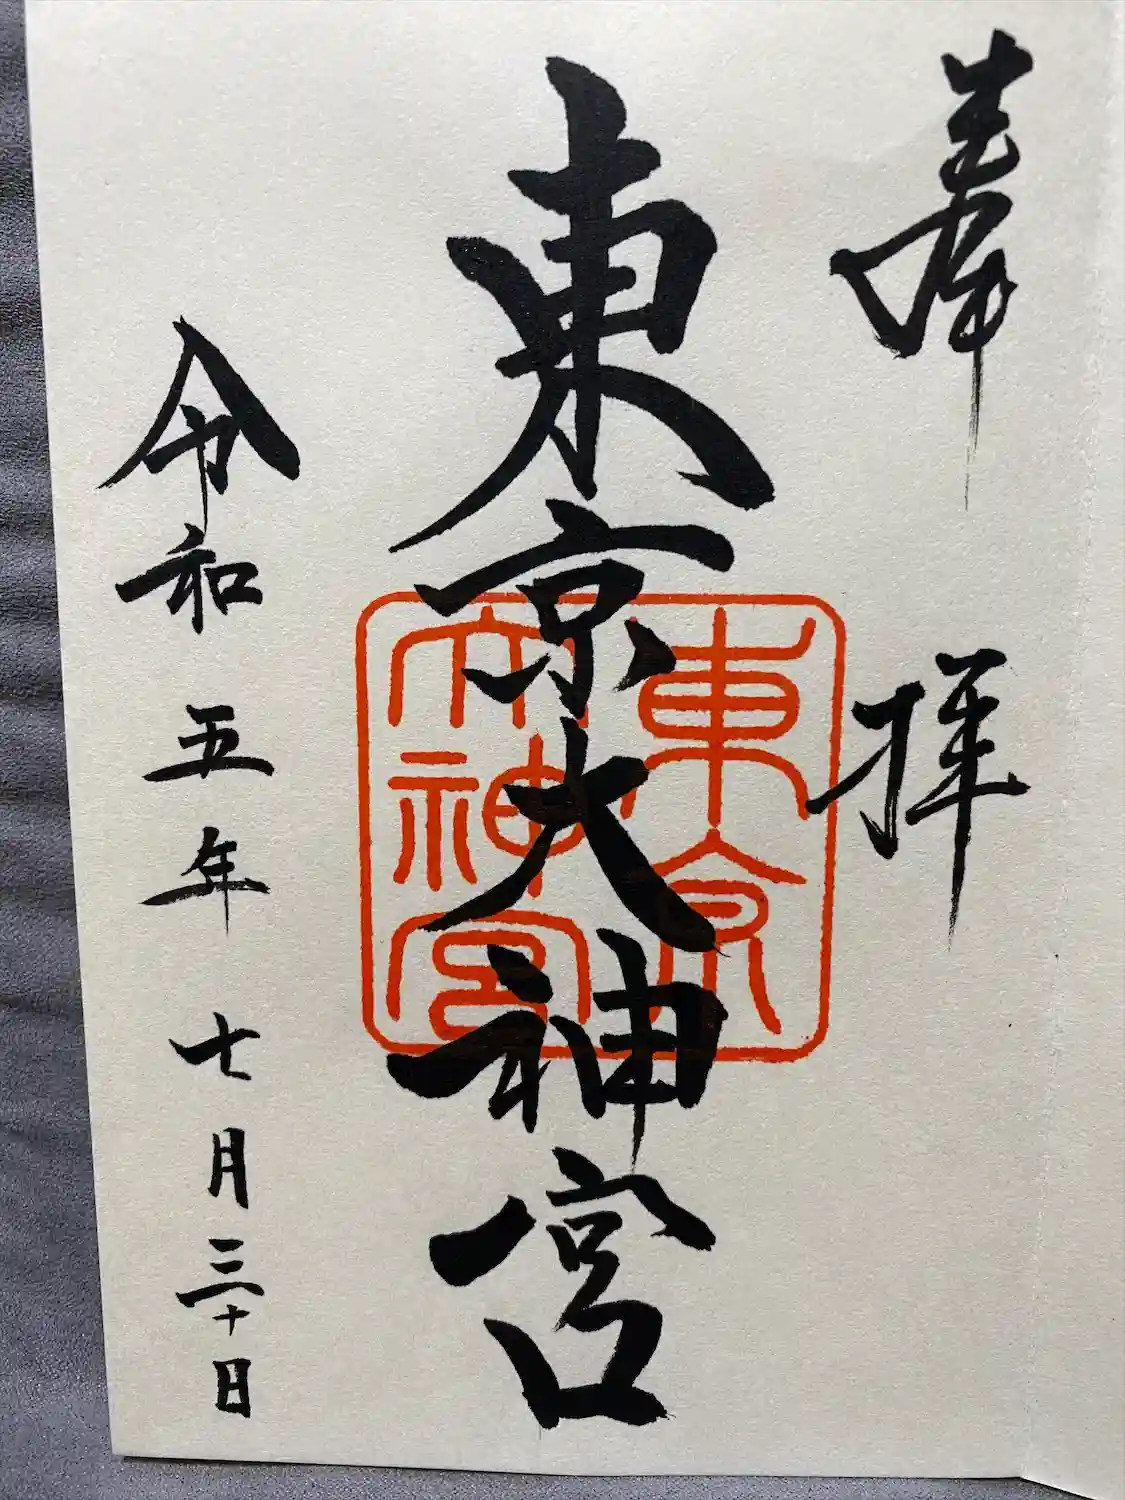 奉拝
東京大神宮
東京
大神宮
令和五年七月三十日